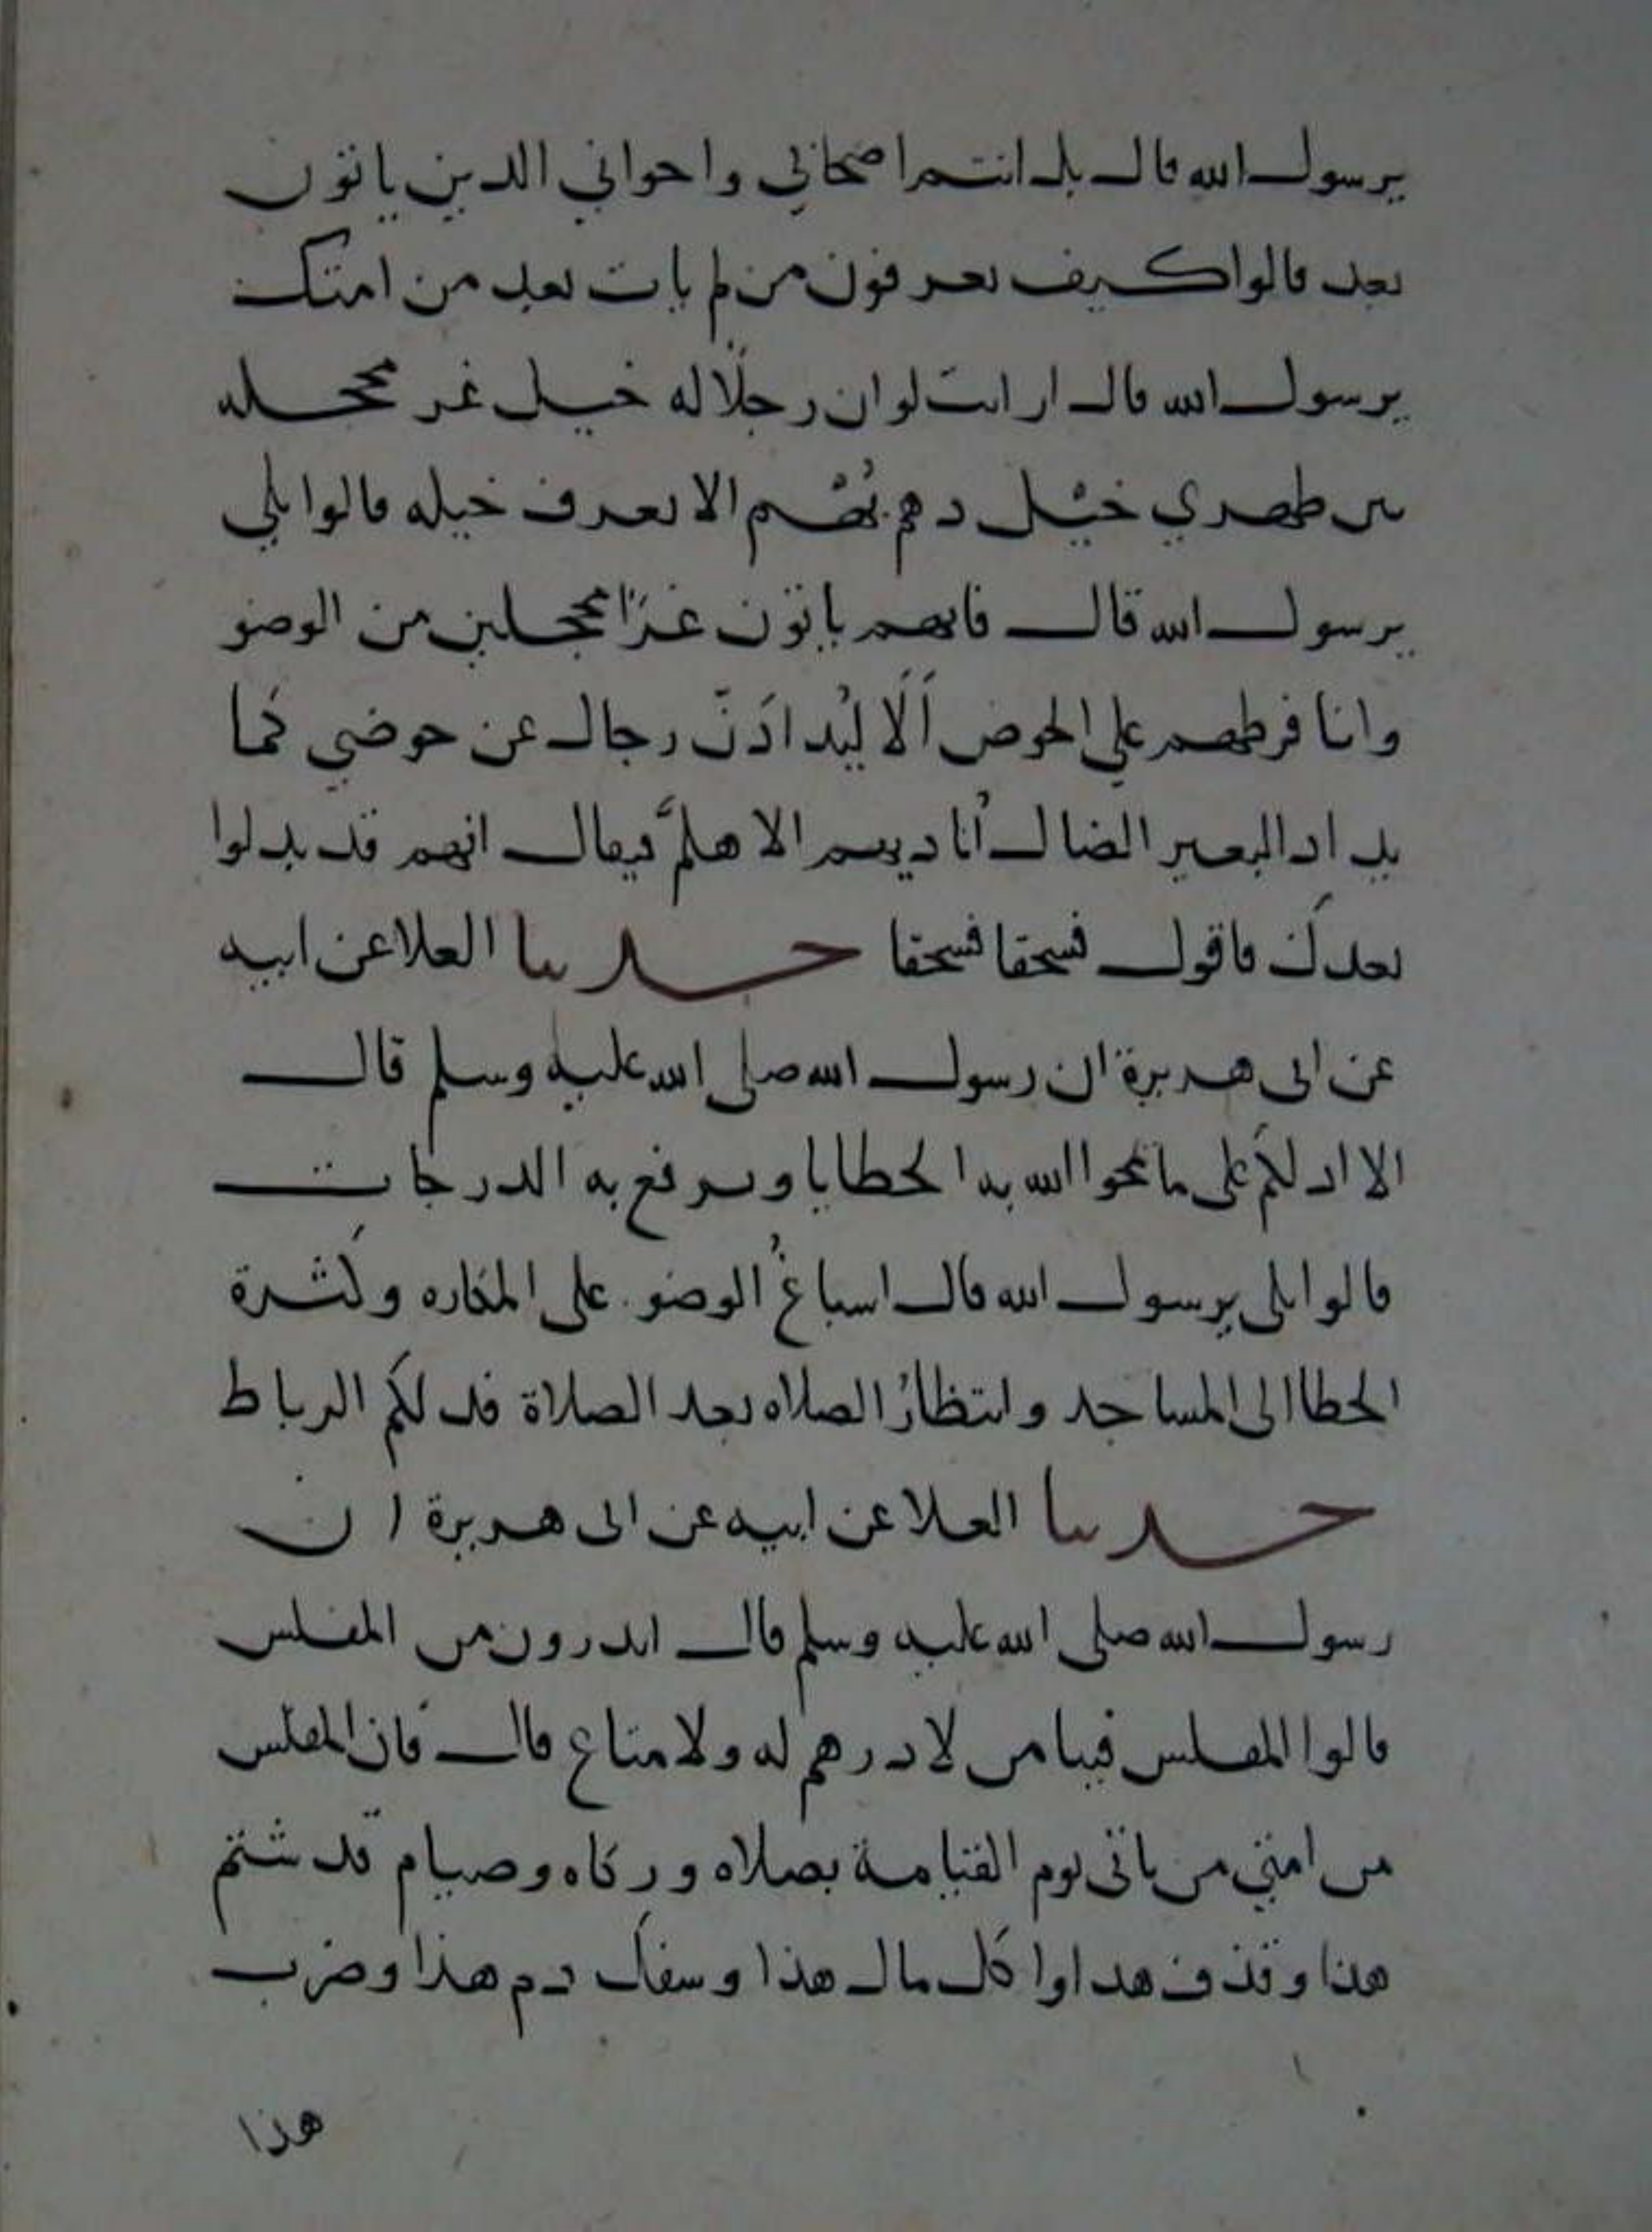 يرسول الله قال بل انتم اصحابي واخواني الذين ياتون
بعد قالوا كيف تعرفون من لم يات بعد من امتك
يرسول الله قال ارايت لو ان رجلا له خيل غر محجله
بين ظهري خيل دهم بُهْم الا يعرف خيله قالوا بلي
يرسول الله قال فانهم ياتون غرًا محجلين من الوضو
وانا فرطهم علي الحوض اَلَا ليُذادَنّ رجال عن حوضي كما
يذاد البعير الضال اُناديهم الا هلمَّ فيقال انهم قد بدلوا
بعدك فاقول فسحقا فسحقا حدثنا العلا عن ابيه
عن ابى هريرة ان رسول الله صلى الله عليه وسلم قال
الا ادلكم على ما يمحوا الله به الخطايا ويرفع به الدرجات
قالوا بلى يرسول الله قال اسباغُ الوضو على المكاره وكثرة
الخطا الى المساجد وانتظارُ الصلاه بعد الصلاة فذلكم الرباط
حدثنا العلا عن ابيه عن ابى هريرة ان
رسول الله صلى الله عليه وسلم قال اتدرون من المفلس
قالوا المفلس فينا من لا درهم له ولا متاع قال فان المفلس
من امتي من ياتى يوم القيامة بصلاه وزكاه وصيام قد شتم
هذا وقذف هذا واكل مال هذا وسفك دم هذا وضرب
هذا